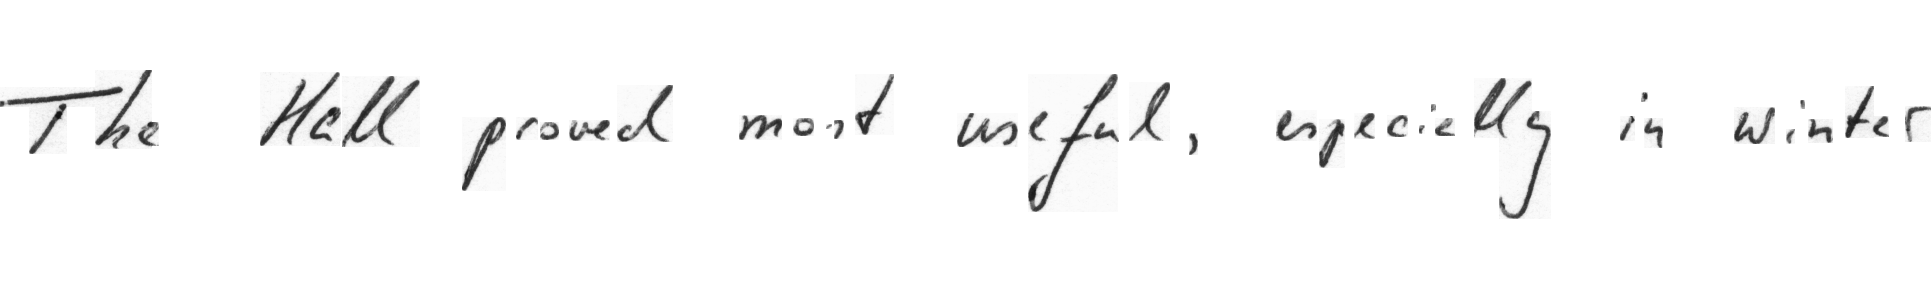 The Hall proved most useful, especially in winter